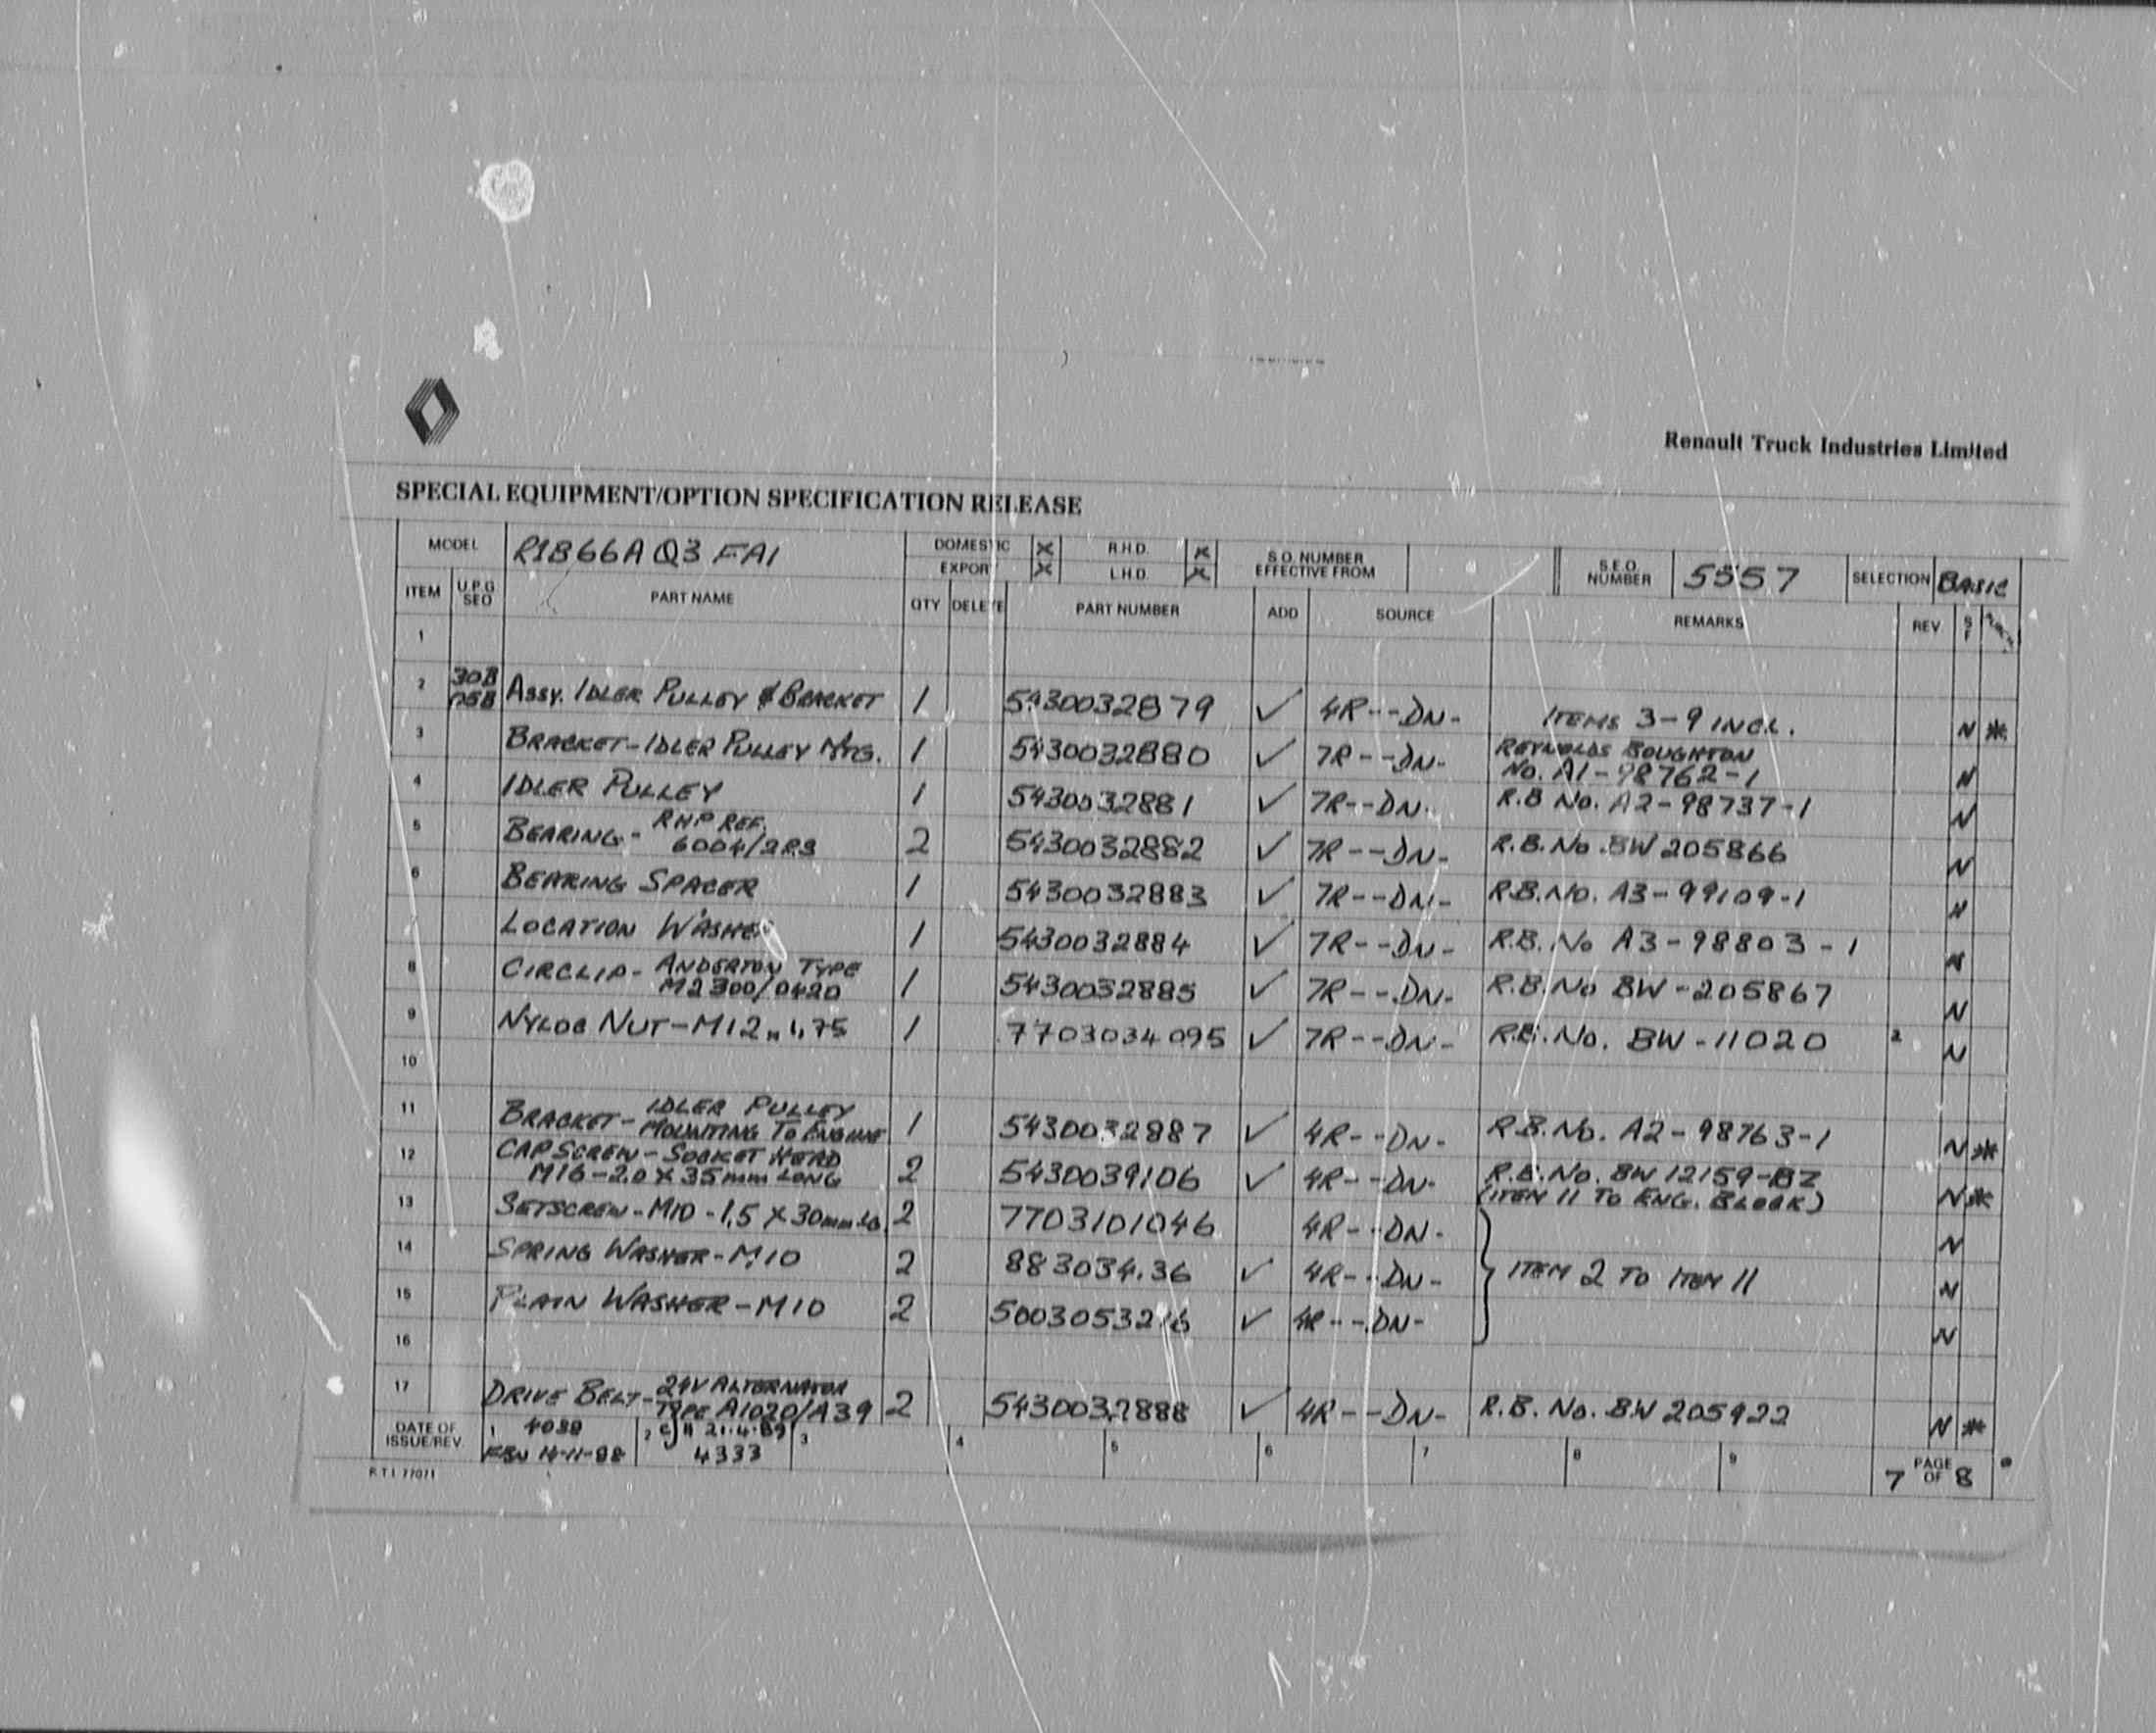 Renault Truck Industries Limited
SPECIAL EQUIPMENT/OPTION SPECIFICATION RELEASE
MODEL R1866A Q3 FA1 DOMESTIC X R.H.D. X S.O. NUMBER EFFECTIVE FROM S.E.O. NUMBER 5557 SELECTION BASIC
EXPORT X L.H.D. X
ITEM U.P.G SEO PART NAME QTY DELETE PART NUMBER ADD SOURCE REMARKS REV S F
1
2 30B 05B ASSY. IDLER PULLEY & BRACKET 1 5430032879 ✓ 4R--DN- ITEMS 3-9 INCL. N *
3 BRACKET-IDLER PULLEY MTG. 1 5430032880 ✓ 7R--DN- REYNOLDS BOUGHTON
No. A1-98762-1 N
4 IDLER PULLEY 1 5430032881 ✓ 7R--DN- R.B No. A2-98737-1 N
5 BEARING- RHP REF.
6004/2RS 2 5430032882 ✓ 7R--DN- R.B. No. BW 205866 N
6 BEARING SPACER 1 5430032883 ✓ 7R--DN- R.B. No. A3-99109-1 N
LOCATION WASHER 1 5430032884 ✓ 7R--DN- R.B. No A3-98803-1 N
8 CIRCLIP- ANDERTON TYPE
M2300/0420 1 5430032885 ✓ 7R--DN- R.B. No BW-205867 N
9 NYLOC NUT-M12 x 1,75 1 7703034095 ✓ 7R--DN- R.B. No. BW-11020 2 N
10
11 BRACKET- IDLER PULLEY
MOUNTING TO ENGINE 1 5430032887 ✓ 4R--DN- R.B. No. A2-98763-1 N *
12 CAPSCREW-SOCKET HEAD
M16-2.0 X 35mm LONG 2 5430039106 ✓ 4R--DN- R.B. No. BW 12159-BZ
(ITEM 11 TO ENG. BLOCK) N *
13 SETSCREW-M10-1.5 X 30mm LG. 2 7703101046 4R--DN- N
14 SPRING WASHER-M10 2 883034.36 ✓ 4R--DN- ITEM 2 TO ITEM 11 N
15 PLAIN WASHER-M10 2 5003053216 ✓ 4R--DN- N
16
17 DRIVE BELT- 24V ALTERNATOR
TYPE A1020/A39 2 5430032888 ✓ 4R--DN- R.B. No. BW 205922 N *
DATE OF ISSUE/REV. 1 4039 2 21.4.89 3 4 5 6 7 8 9 PAGE 7 OF 8
14-11-88 4333
R.T.I. 77071